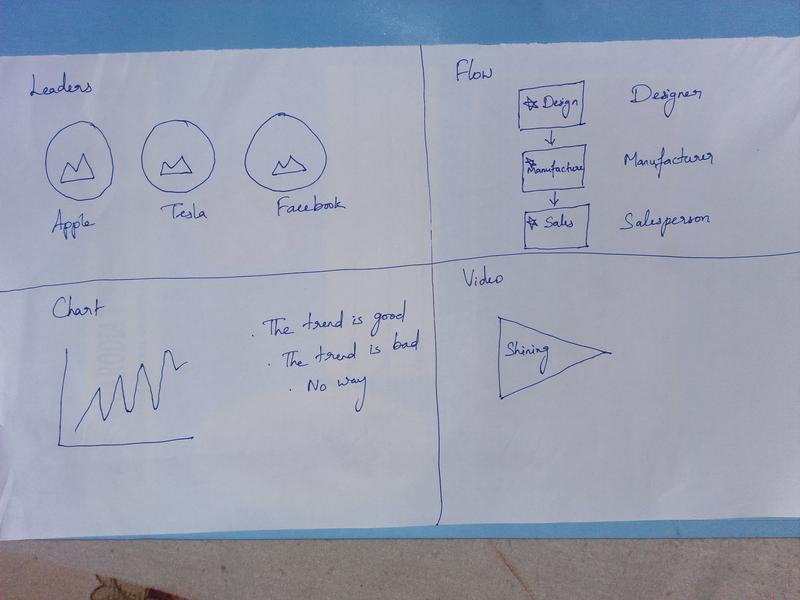 Leaders
Apple
Tesla
Facebook
Flow
Design
Designer
Manufacture
Manufacturer
Sales
Salesperson
Chart
. The trend is good
. The trend is bad
. No way
Video
Shining